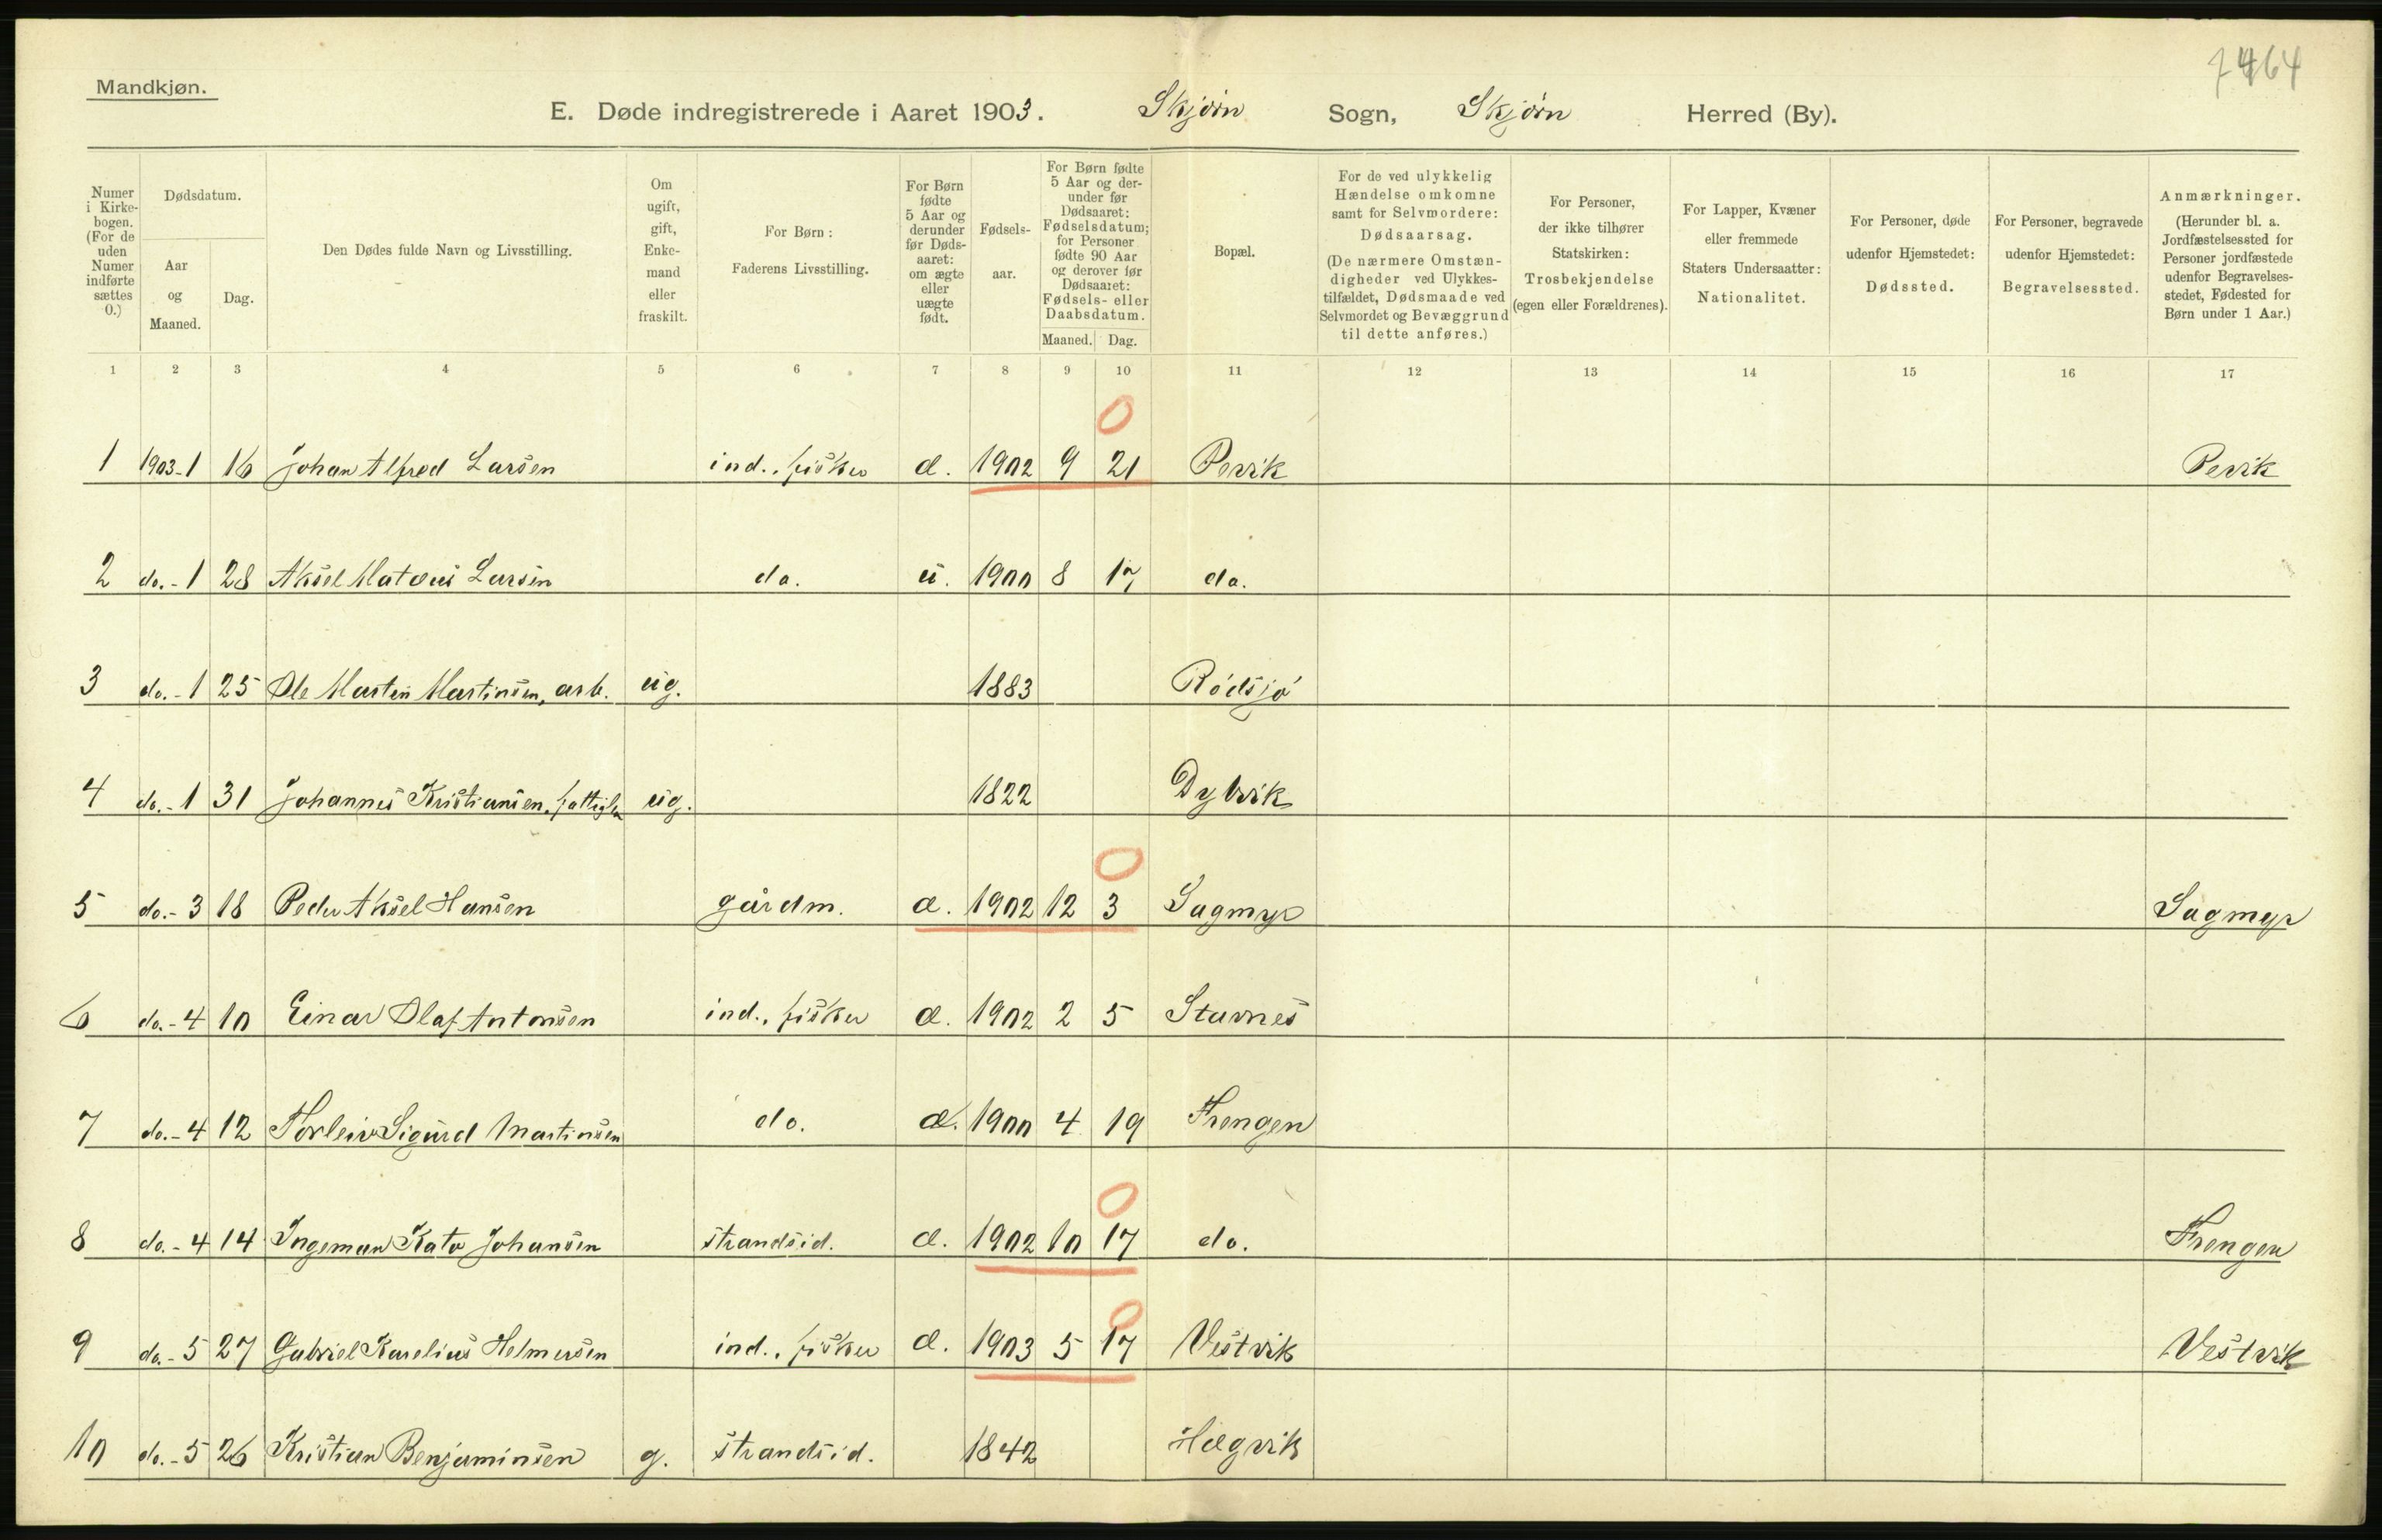 7464
Mandkjøn.
E. Døde indregistrerede i Aaret 1903. Skjørn Sogn, Skjørn Herred (By).
Numer i Kirke- bogen. (For de uden Numer indførte sættes 0.)
Dødsdatum.
Aar og Maaned.
Dag.
Den Dødes fulde Navn og Livsstilling.
Om ugift, gift, Enke- mand eller fraskilt.
For Børn: Faderens Livsstilling.
For Børn fødte 5 Aar og derunder før Døds- aaret: om ægte eller uægte født.
Fødsels- aar.
For Børn fødte 5 Aar og der- under før Dødsaaret: Fødselsdatum; for Personer fødte 90 Aar og derover før Dødsaaret: Fødsels- eller Daabsdatum.
Maaned. Dag.
Bopæl.
For de ved ulykkelig Hændelse omkomne samt for Selvmordere: Dødsaarsag. (De nærmere Omstæn- digheder ved Ulykkes- tilfældet, Dødsmaade ved Selvmordet og Bevæggrund til dette anføres.)
For Personer, der ikke tilhører Statskirken: Trosbekjendelse (egen eller Forældrenes).
For Lapper, Kvæner eller fremmede Staters Undersaatter: Nationalitet.
For Personer, døde udenfor Hjemstedet: Dødssted.
For Personer, begravede udenfor Hjemstedet: Begravelsessted.
Anmærkninger. (Herunder bl. a. Jordfæstelsessted for Personer jordfæstede udenfor Begravelses- stedet, Fødested for Børn under 1 Aar.)
1 2 3 4 5 6 7 8 9 10 11 12 13 14 15 16 17
0
1 1903-1 16 Johan Alfred Larsen ind., fisker æ. 1902 9 21 Pevik Pevik
2 do.-1 28 Aksel Mateus Larsen do. u. 1900 8 17 do.
3 do.-1 25 Ole Martin Martinsen, arb. ug. 1883 Rødsjø
4 do.-1 31 Johannes Kristiansen, fattigl. ug. 1822 Dylvik
0
5 do.-3 18 Peder Aksel Hansen gårdm. æ. 1902 12 3 Sagmyr Sagmyr
6 do.-4 10 Einar Olaf Antonsen ind., fisker æ. 1902 2 5 Stavnes
7 do.-4 12 Torleiv Sigurd Martinsen do. æ. 1900 4 19 Frengen
0
8 do.-4 14 Ingeman Kato Johansen strandsid. æ. 1902 10 17 do. Frengen
0
9 do.-5 27 Gabriel Karelius Helmersen ind., fisker æ. 1903 5 17 Vestvik Vestvik
10 do.-5 26 Kristian Benjaminsen g. strandsid. 1842 Hægvik